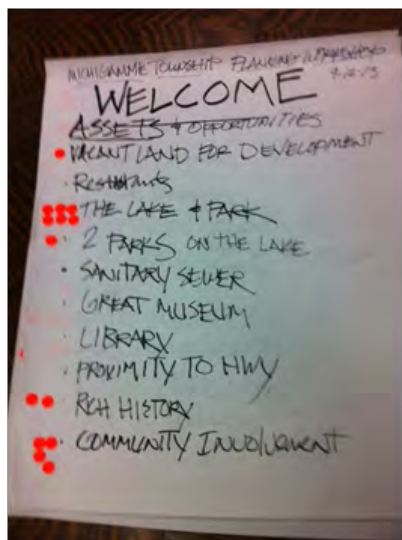 MICHIGAMME TOWNSHIP PLANNING WORKSHOP
9-12-13
WELCOME
ASSETS & OPPORTUNITIES
• VACANT LAND FOR DEVELOPMENT
• Restaurants
• THE LAKE & PARK
• 2 PARKS ON THE LAKE
• SANITARY SEWER
• GREAT MUSEUM
• LIBRARY
• PROXIMITY TO HWY
RICH HISTORY
• COMMUNITY INVOLVEMENT